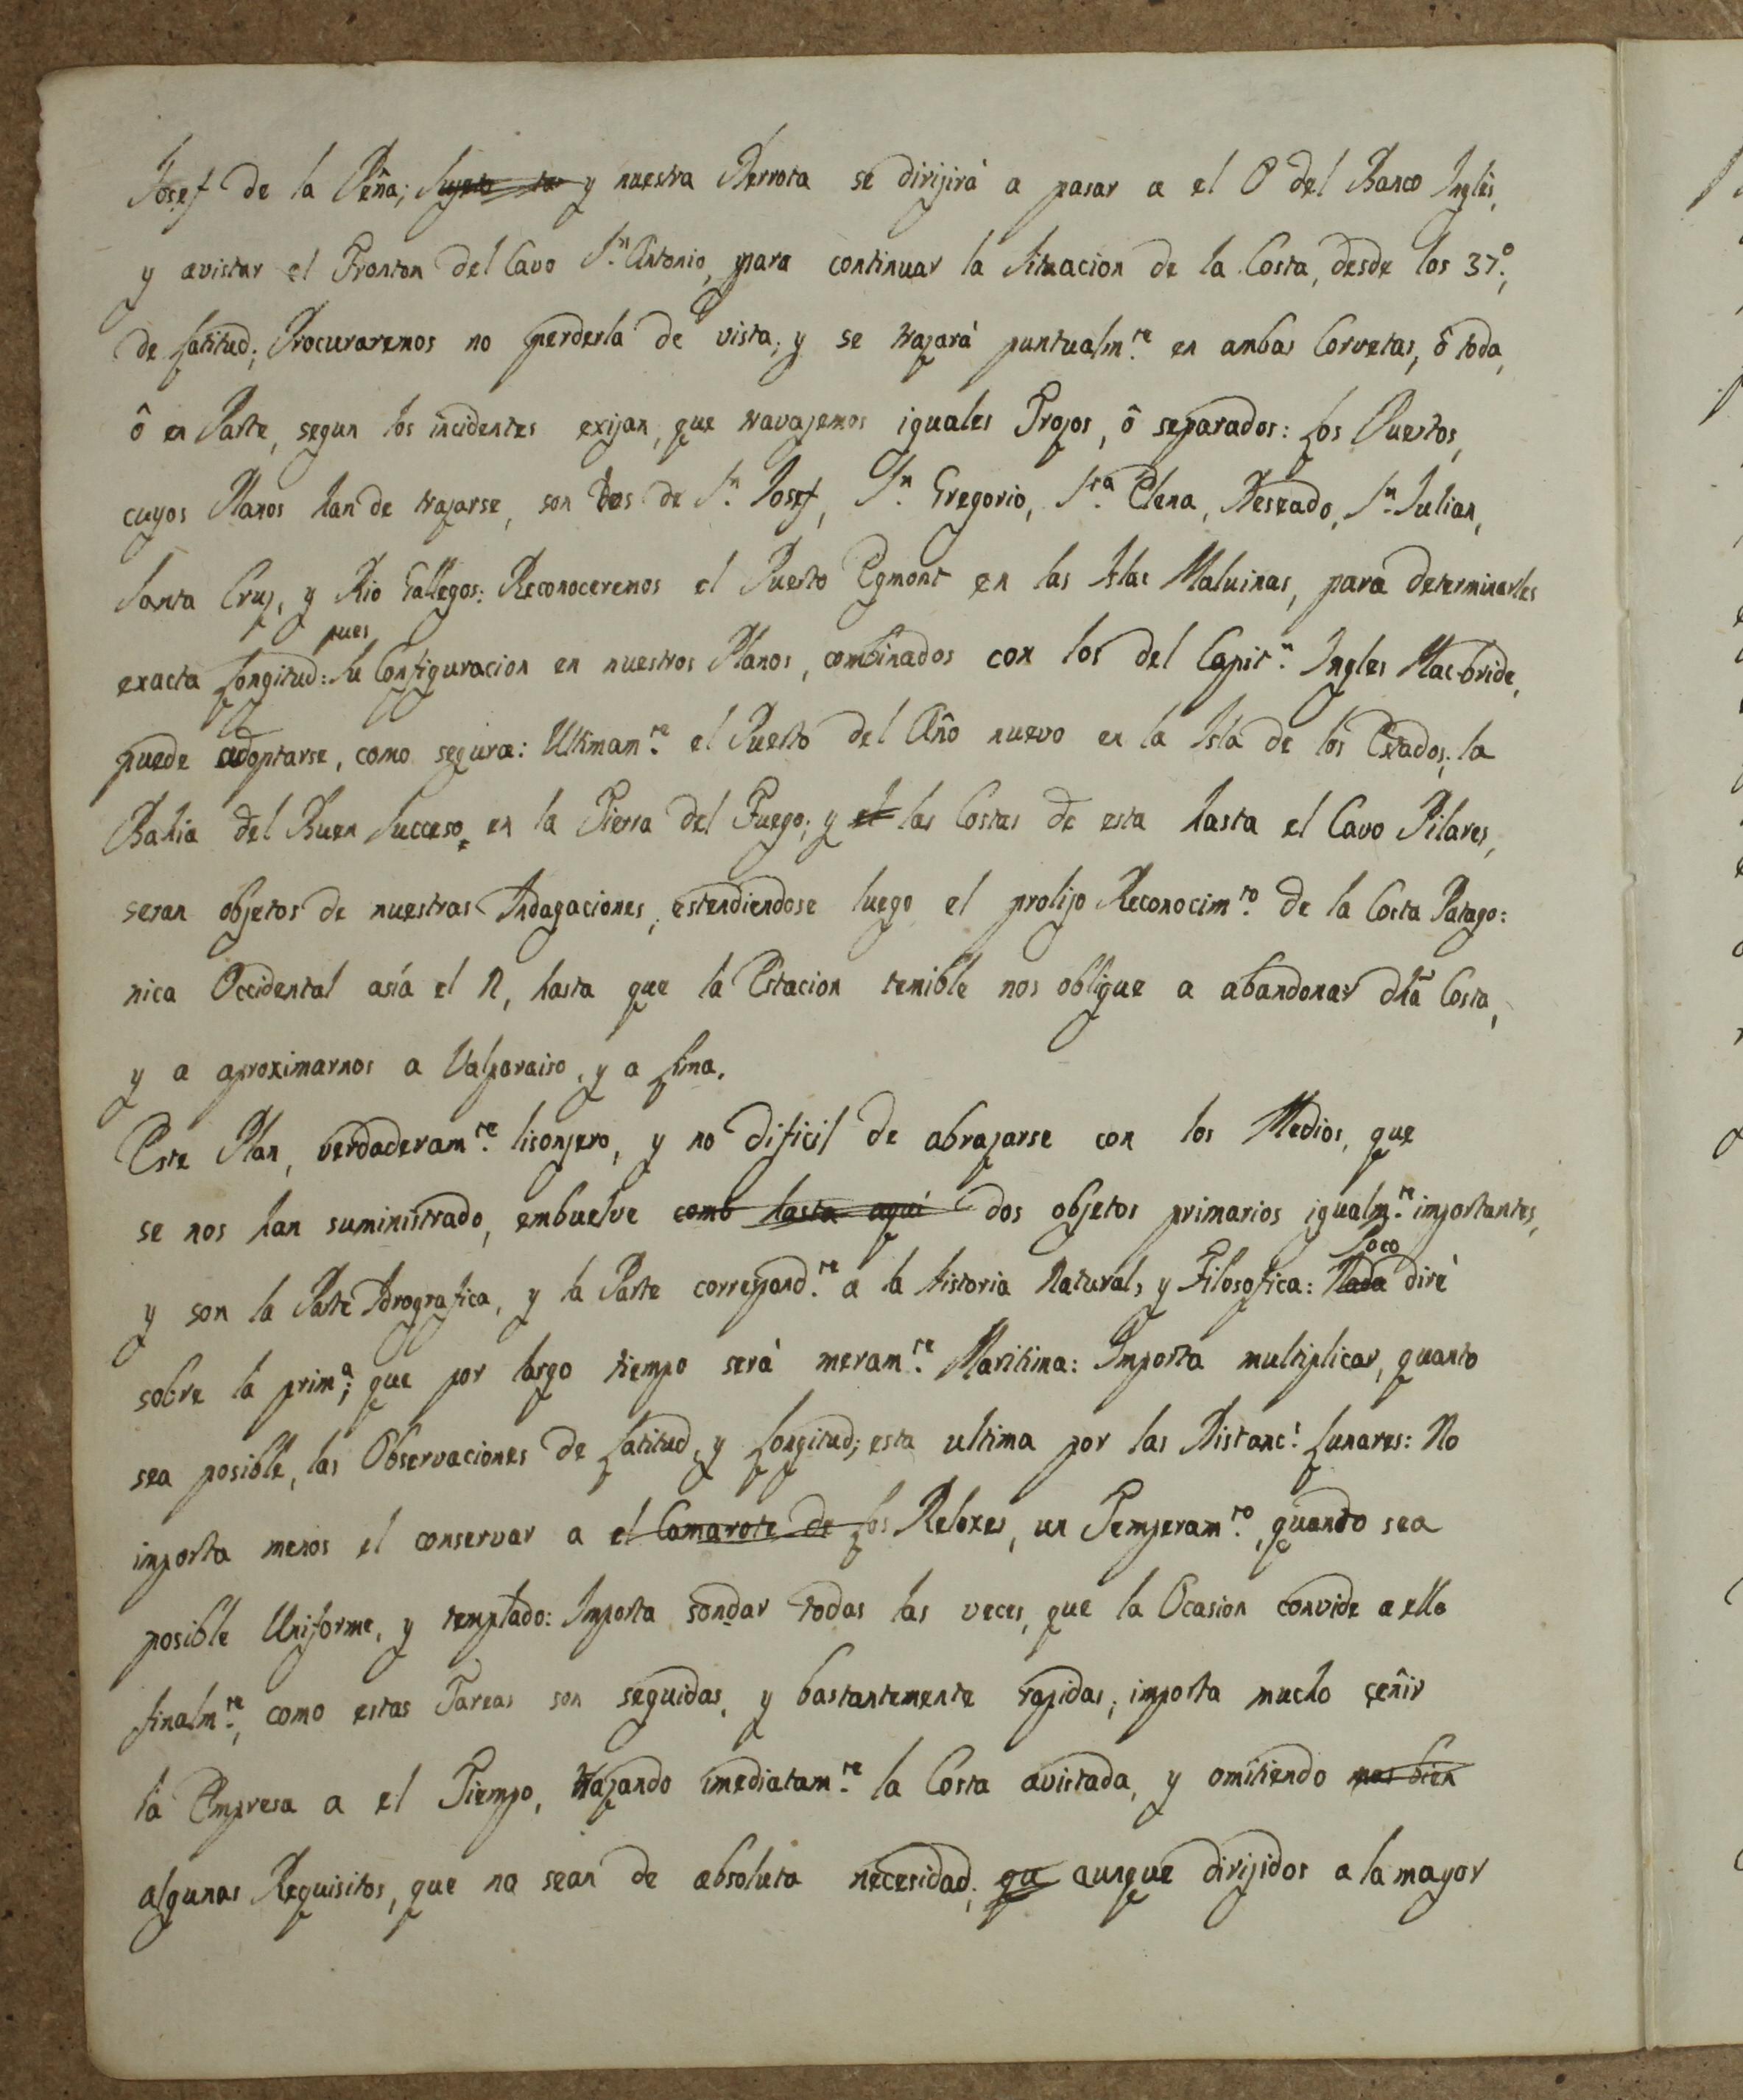 Josef de la Peña; Sujeto la y nuestra Derrota se dirijirà a pasar a el O del Banco Inglès,
y avistar el Fronton del Cavo Sn. Antonio, para continuar la Situacion de la Costa, desde los 37º.,
de Latitud; Procuraremos no perderla de vista; y se trazarà puntualmte. en ambas Corvetas, ô toda,
ô en Parte, segun los incidentes exijan, que travajemos iguales Trozos, ô separados: Los Puertos,
cuyos Planos han de trazarse, son los de Sn. Josef, Sn. Gregorio, Sta. Elena, Deseado, Sn. Julian,
Santa Cruz, y Rio Gallegos: Reconoceremos el Puerto Egmont en las Islas Maluinas, para determinarles
exacta Longitud: pues su Configuracion en nuestros Planos, combinados con los del Capitn. Ingles Mac-bride,
puede adoptarse, como segura: Ultimamte. el Puerto del Año nuevo en la Isla de los Estados; la
Bahia del Buen Succeso, en la Tierra del Fuego; y el las Costas de esta hasta el Cavo Pilares,
seran objetos de nuestras Indagaciones, estendiendose luego el prolijo Reconocimto. de la Costa Patago:
nica Occidental asía el N, hasta que la Estacion temible nos obligue a abandonar dha Costa,
y a aproximarnos a Valparaiso, y a Lima.
Este Plan, verdaderamte. lisonjero, y no dificil de abrazarse con los Medios, que
se nos han suministrado, embuelve como hasta aquí dos objetos primarios igualmte. importantes,
y son la Parte Idrografica, y la Parte correspondte. a la Historia Natural, y Filosofica: Nada Poco dirè
sobre la prima; que por largo tiempo serà meramte. Maritima: Importa multiplicar, quanto
sea posible, las Observaciones de Latitud, y Longitud; esta ultima por las Distancs. Lunares: No
importa menos el conservar a el Camarote de los Reloxes, un Temperamto., quando sea
posible Uniforme, y templado: Importa sondar todas las veces, que la Ocasion convide a ello
finalmte., como estas Tareas son seguidas, y bastantemente rapidas; importa mucho çeñir
la Empresa a el Tiempo, trazando imediatamte. la Costa avistada, y omitiendo mas bien
algunas Requisitos, que no sean de absoluta necesidad; qu aunque dirijidos a la mayor